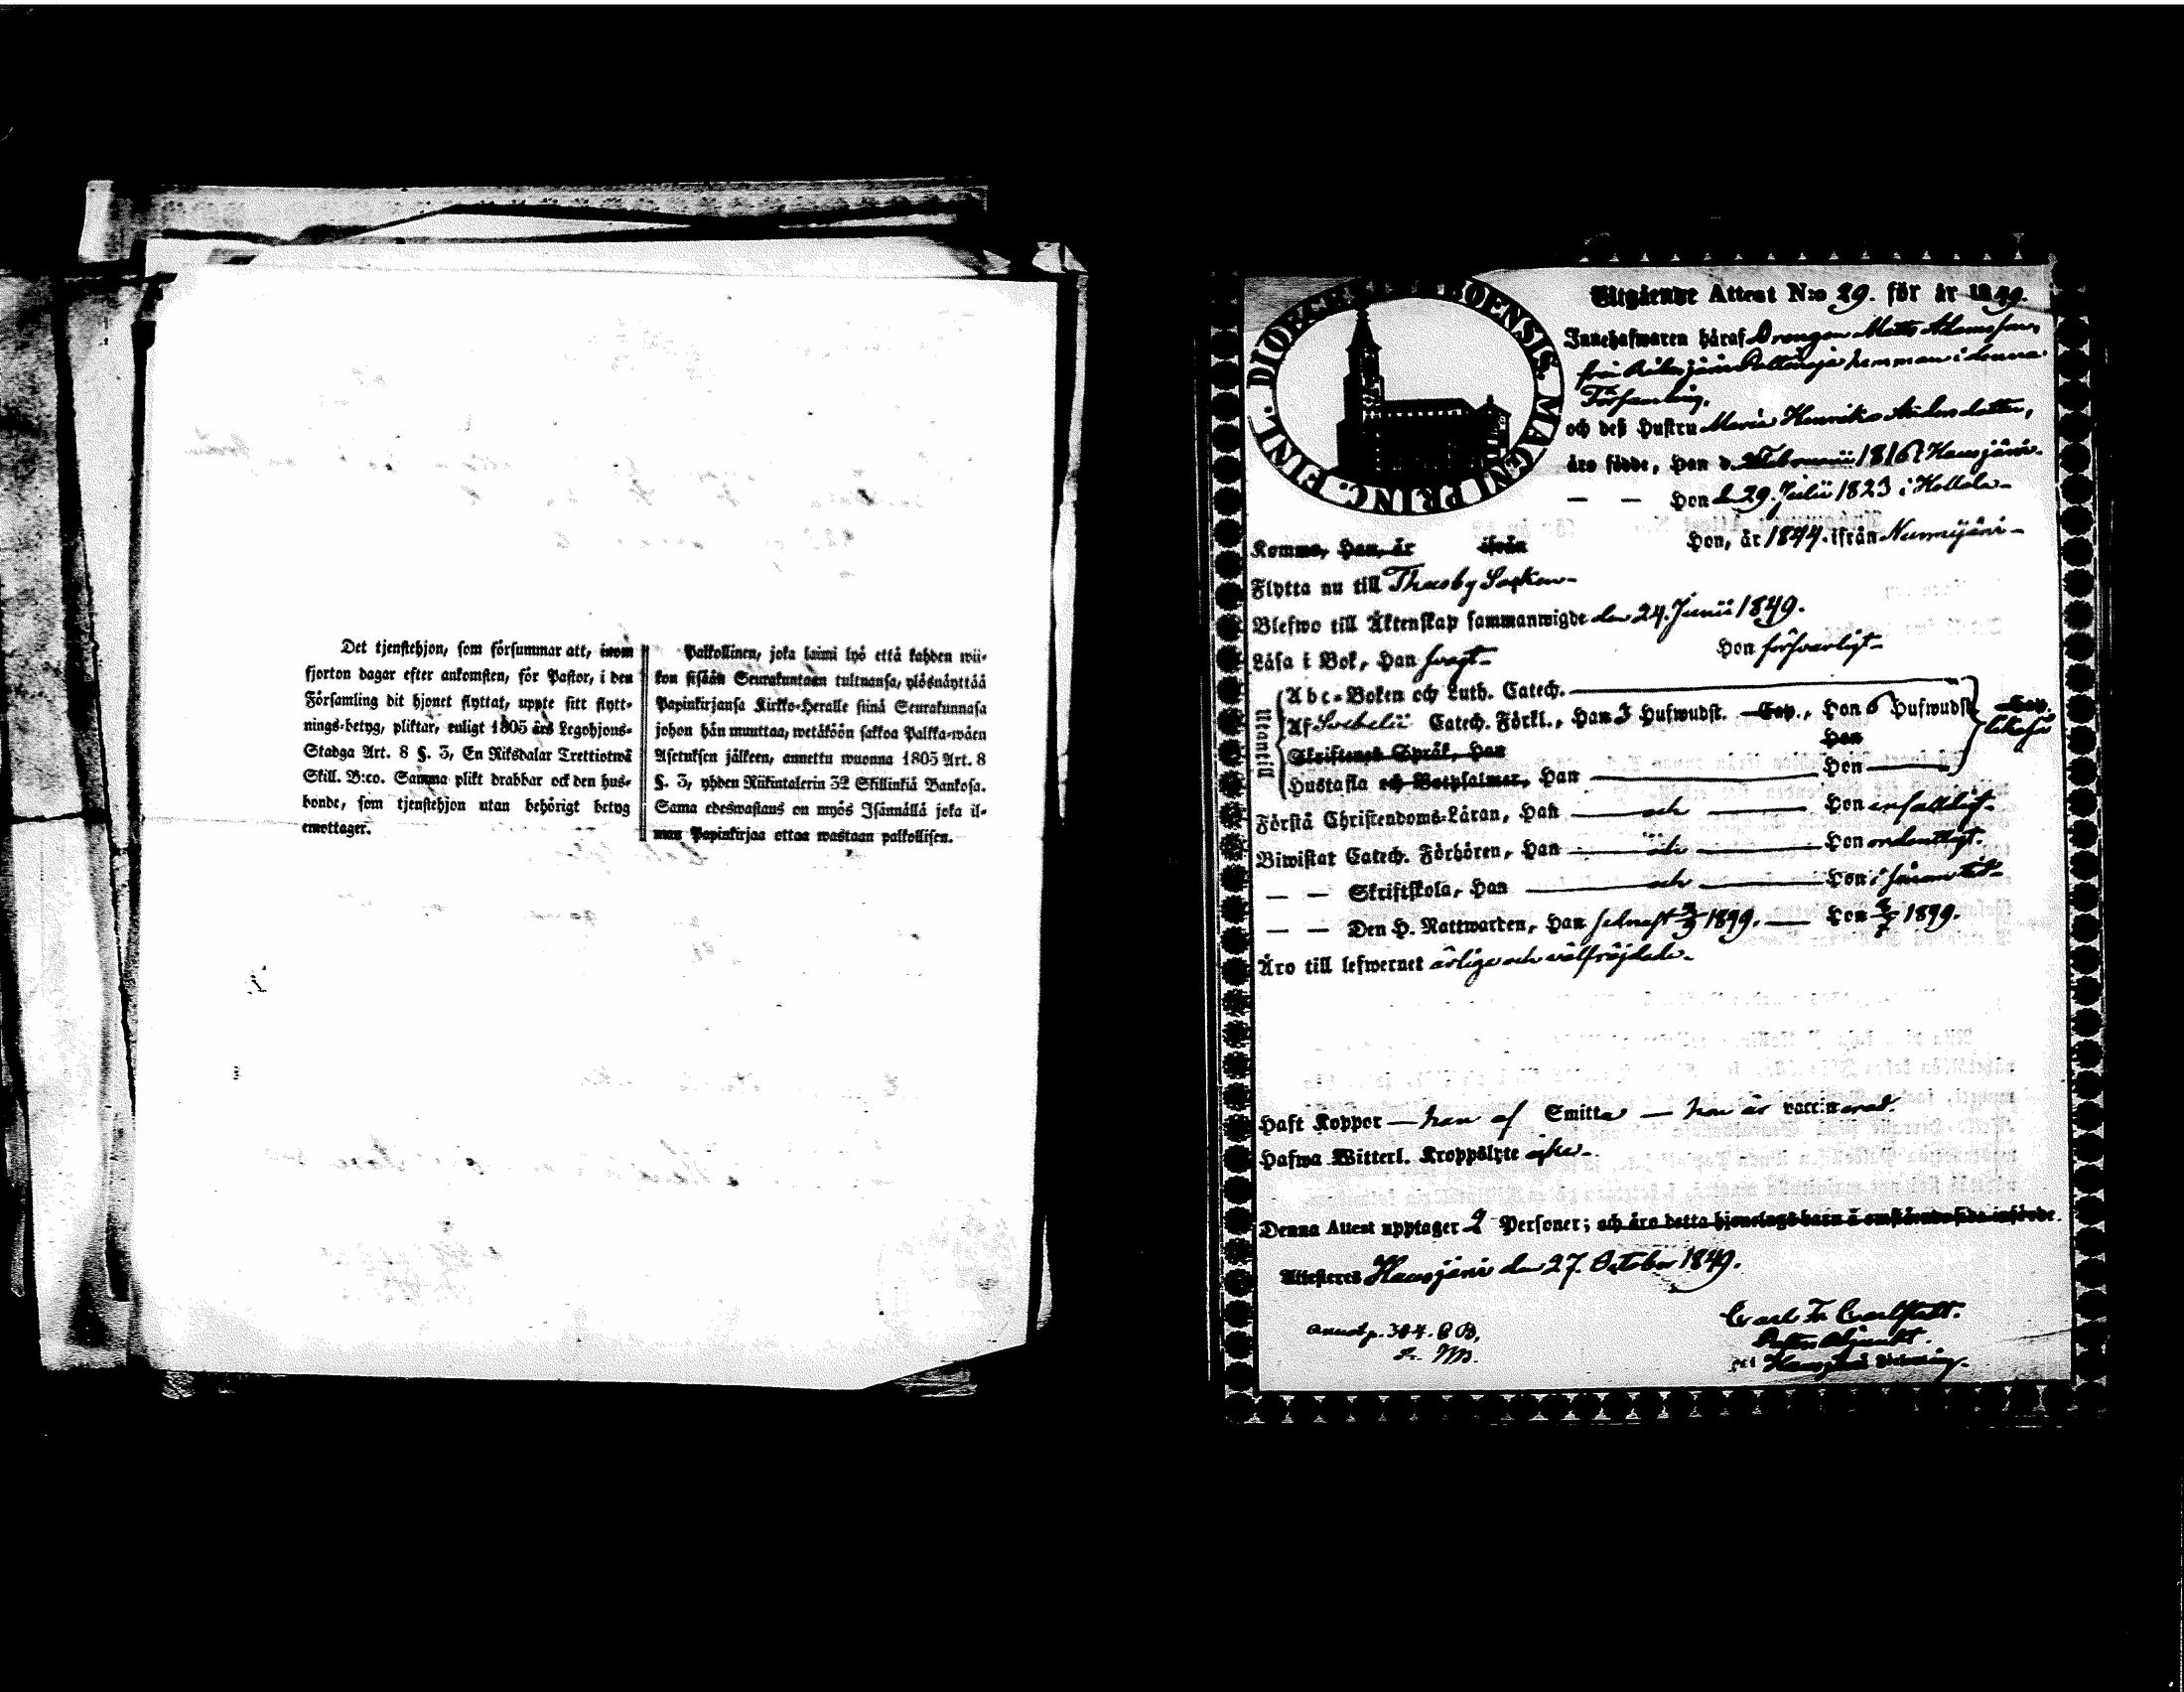 Det tjenstehjon, som försummar att, inom
fjorton dagar efter ankomsten, för Pastor, i den
Församling dit hjonet flyttat, uppte sitt flytt-
nings-betyg, pliktar, enligt 1805 års Legohjons-
Stadga Art. 8 §. 3, En Riksdalar Trettiotwå
Skill. B:co. Samma plikt drabbar ock den hus-
bonde, som tjenstehjon utan behörigt betyg
emottager.
Palkollinen, joka laimi lyö että kahden wii-
kon sisään Seurakuntaan tultuansa, ylösnäyttää
Papinkirjansa Kirkko-Heralle siinä Seurakunnasa
johon hän muuttaa, wetäköön sakkoa Palkka-wäen
Asetuksen jälkeen, annettu wuonna 1805 Art. 8
§. 3, yhden Riikintalerin 32 Skillinkiä Bankosa.
Sama edeswastaus on myös Isännällä joka il-
man Papinkirjaa ottaa wastaan palkollisen.
DIOECESIS ABOENSIS. MAGNI PRINC. FINL.
Utgående Attest N:o 29. för år 1849.
Innehafwaren häraf Drengen Matts Adamsson,
från hemman i denna
Församling.
och deß Hustru Maria Henriksdotter,
äro födde, Han d. Februarii 1816 i Hausjärvi.
— — Hon d. 29. Julii 1823 i Hollola
Komme, Han, år ifrån Hon, år 1844. ifrån Nurmijärvi
Flytta nu till Thusby Socken
Blefwo till Äktenskap sammanwigde den 24. Junii 1849.
Läsa i Bok, Han svagt Hon försvarligt
Utantill
Abc-Boken och Luth. Catech.
Af Svebelii Catech. Förkl., Han 3 Hufwudst. Cap., Hon 6 Hufwudst. Cap.
likaså
Skriftenes Språk, Han Hon
Hustafla och Botpsalmer, Han Hon
Förstå Christendoms-Läran, Han och Hon enfalldigt
Biwistat Catech. Förhören, Han och Hon ordentligt.
— — Skriftskola, Han och Hon i sinom tid
— — Den H. Nattwarden, Han senast 1849. Hon 1849.
Äro till lefwernet ärlige och välfrejdade
Haft Koppor — han af Smitta — hon är vaccinerad.
Hafwa Witterl. Kroppslyte icke
Denna Attest upptager 2 Personer; och äro detta hjonelags barn å omstående sida införde.
Attesteres Hausjärvi den 27. October 1849.
Carl Fr. Carlstedt.
Pastors Adjunkt.
Annot p. 304. C B.